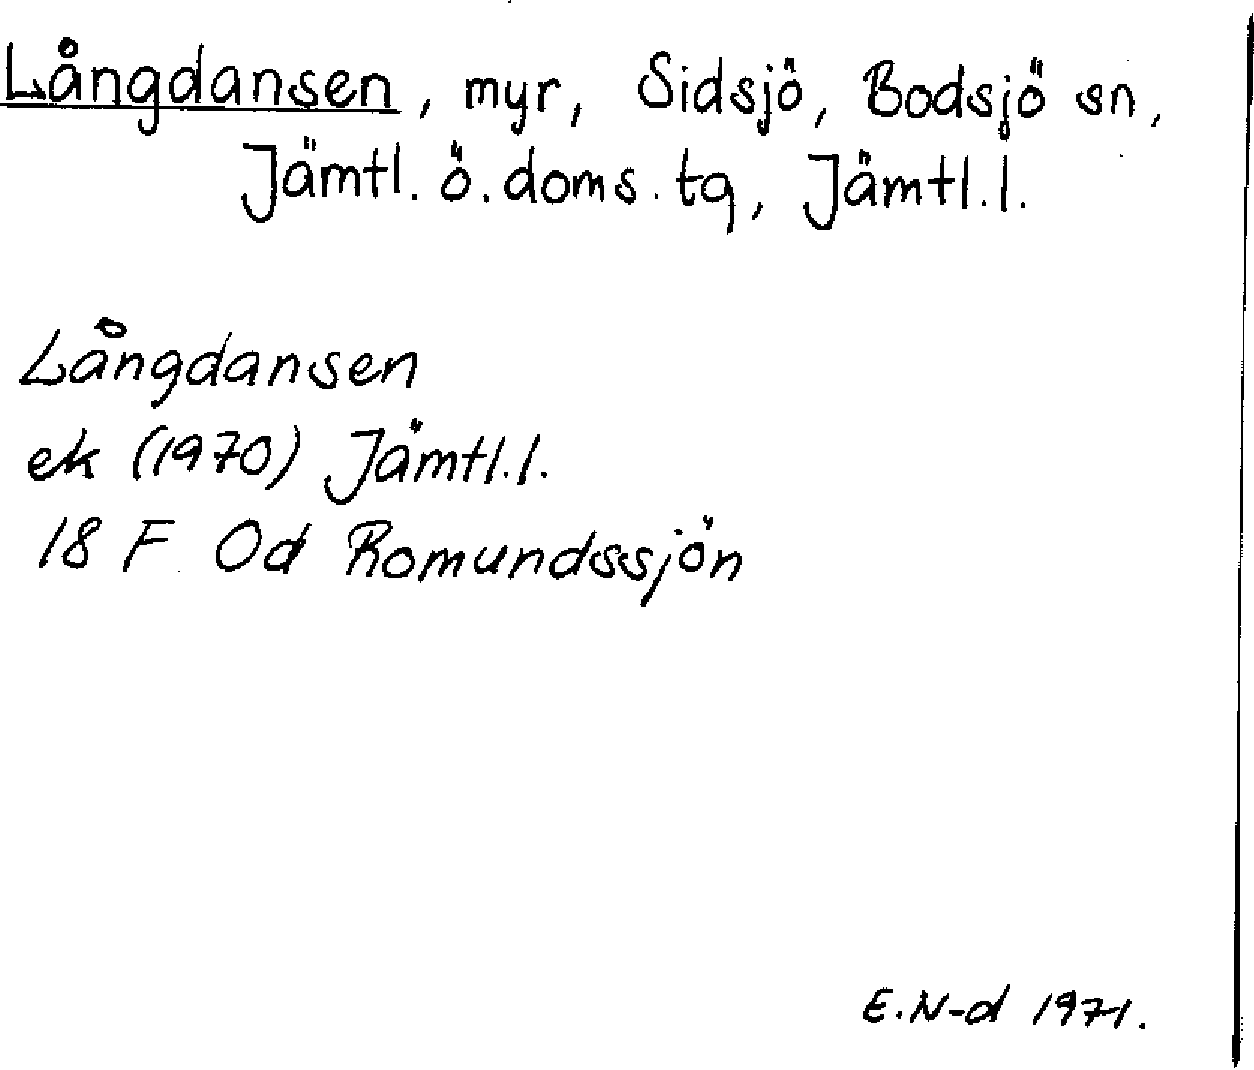 Långdansen, myr, Sidsjö, Bodsjö sn,
Jämtl. ö. doms. tg, Jämtl. l.
Långdansen
ek (1970) Jämtl. l.
18 F Od Romundssjön
E. N-d 1971.